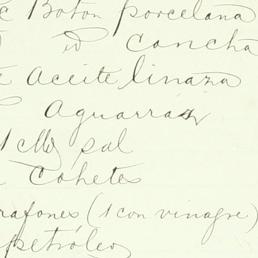 Boton porcelana
id concha
Aceite linaza
Aguarras
sal
Cohetes
rafones (1 con vinagre)
petróleo